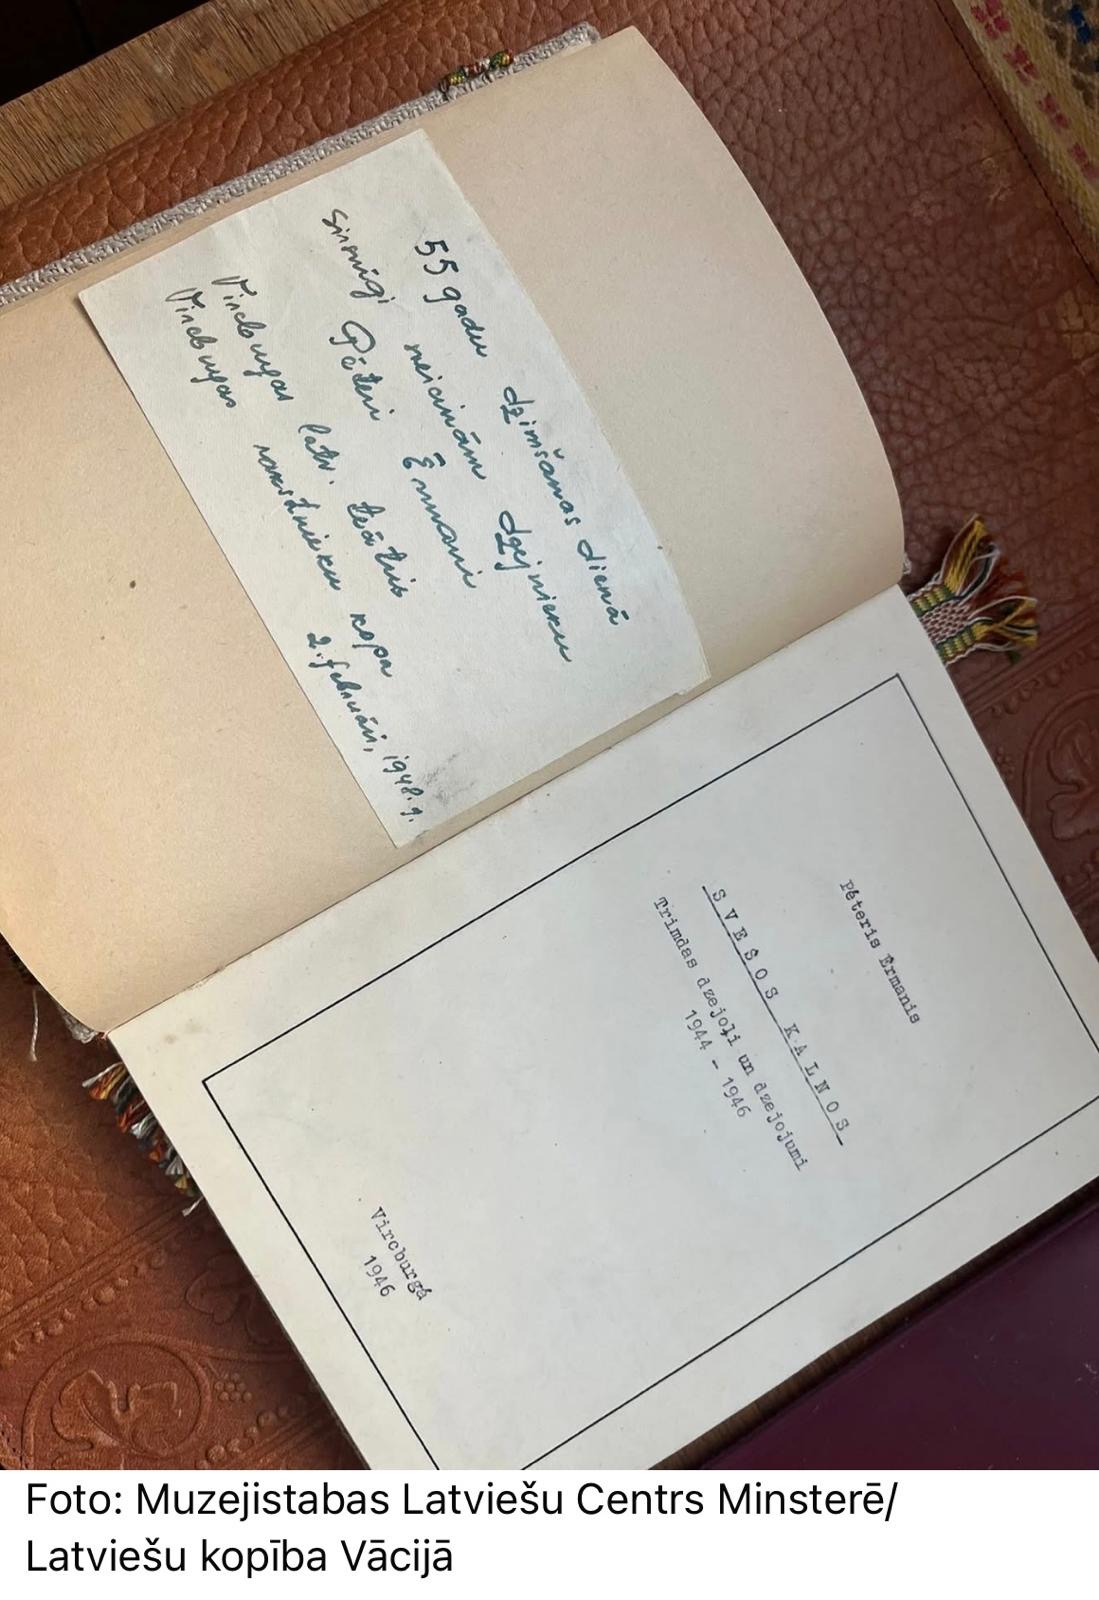 55 gadu dzimšanas dienā
Sirsnīgi sveicinām dzejnieku
Pēteri Ērmani
Vircburgas latv. teātris
Vircburgas rakstnieku kopa
2. februārī, 1948. g.
Pēteris Ērmanis
SVEŠOS KALNOS
Trimdas dzejoļi un dzejojumi
1944 - 1946
Vircburgā
1946
Foto: Muzejistabas Latviešu Centrs Minsterē/
Latviešu kopība Vācijā